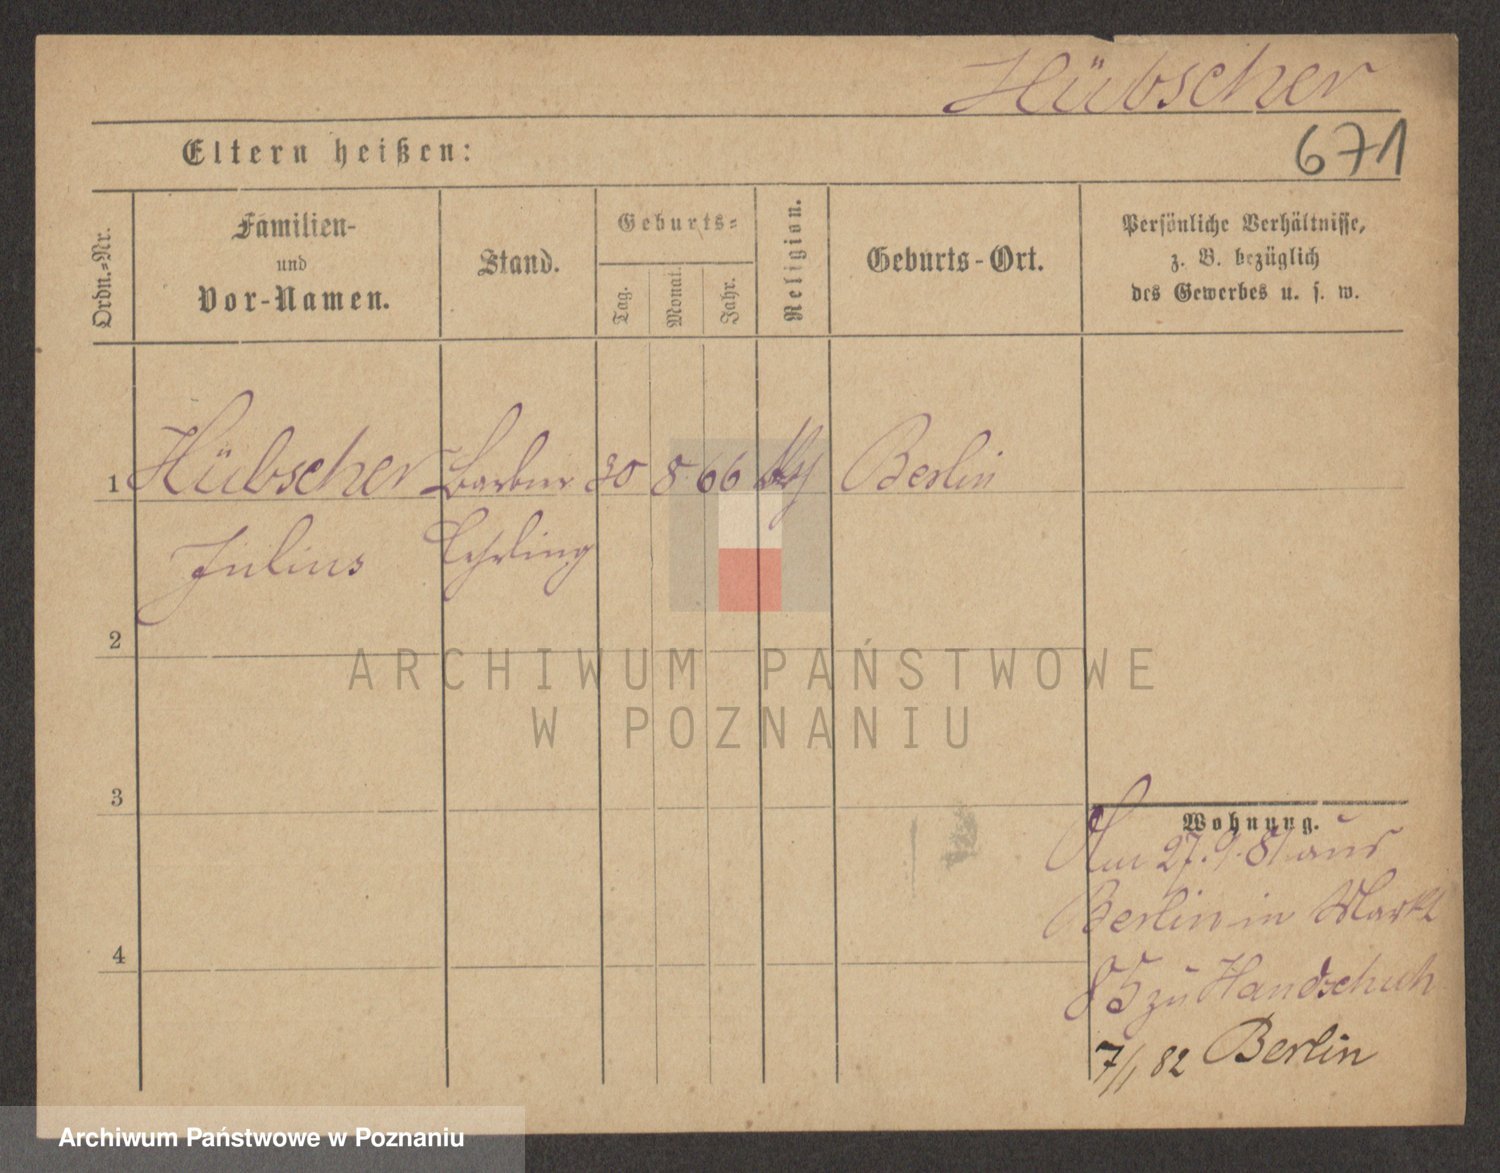 Hübscher
671
Eltern heißen:
Ordn.-Nr.
Familien-
und
Vor-Namen.
Stand.
Geburts-
Tag.
Monat.
Jahr.
Religion.
Geburts-Ort.
Persönliche Verhältnisse,
z. B. bezüglich
des Gewerbes u. s. w.
1 Hübscher Barbier 30 8 66 Berlin
Julius Lehrling
2
ARCHIWUM PAŃSTWOWE
W POZNANIU
3
Wohnung.
Am 27. 9. 81 aus
Berlin in Markt
85 zu Handschuh
4
7/1 82 Berlin
Archiwum Państwowe w Poznaniu